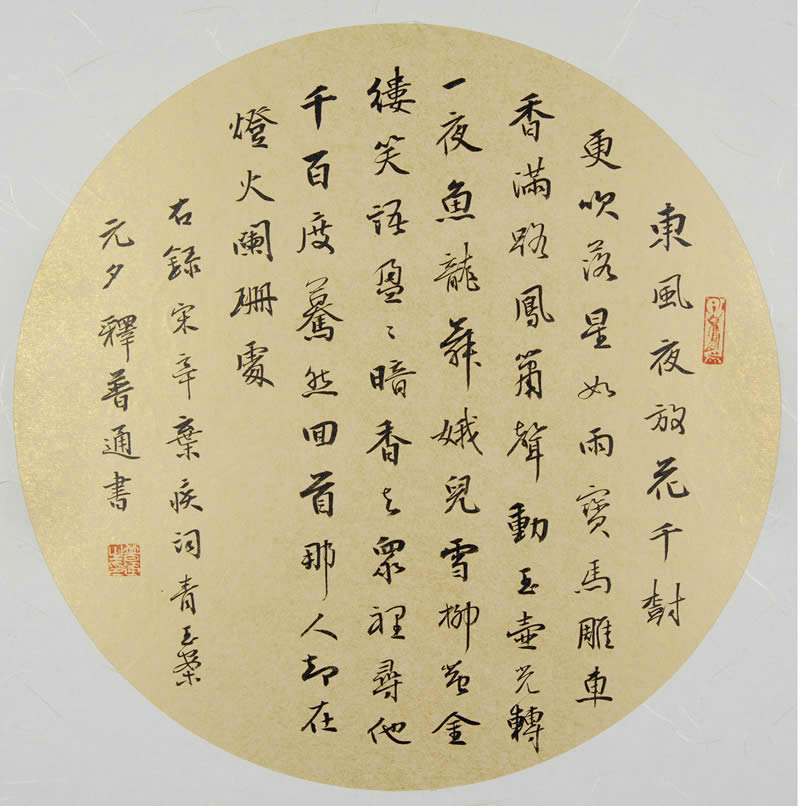 東風夜放花千樹
更吹落星如雨寶馬雕車
香滿路鳳簫聲動玉壺光轉
一夜魚龍舞娥兒雪柳黃金
縷笑語盈々暗香去眾裡尋他
千百度驀然回首那人却在
燈火闌珊處
右錄宋辛棄疾詞青玉案
元夕釋普通書